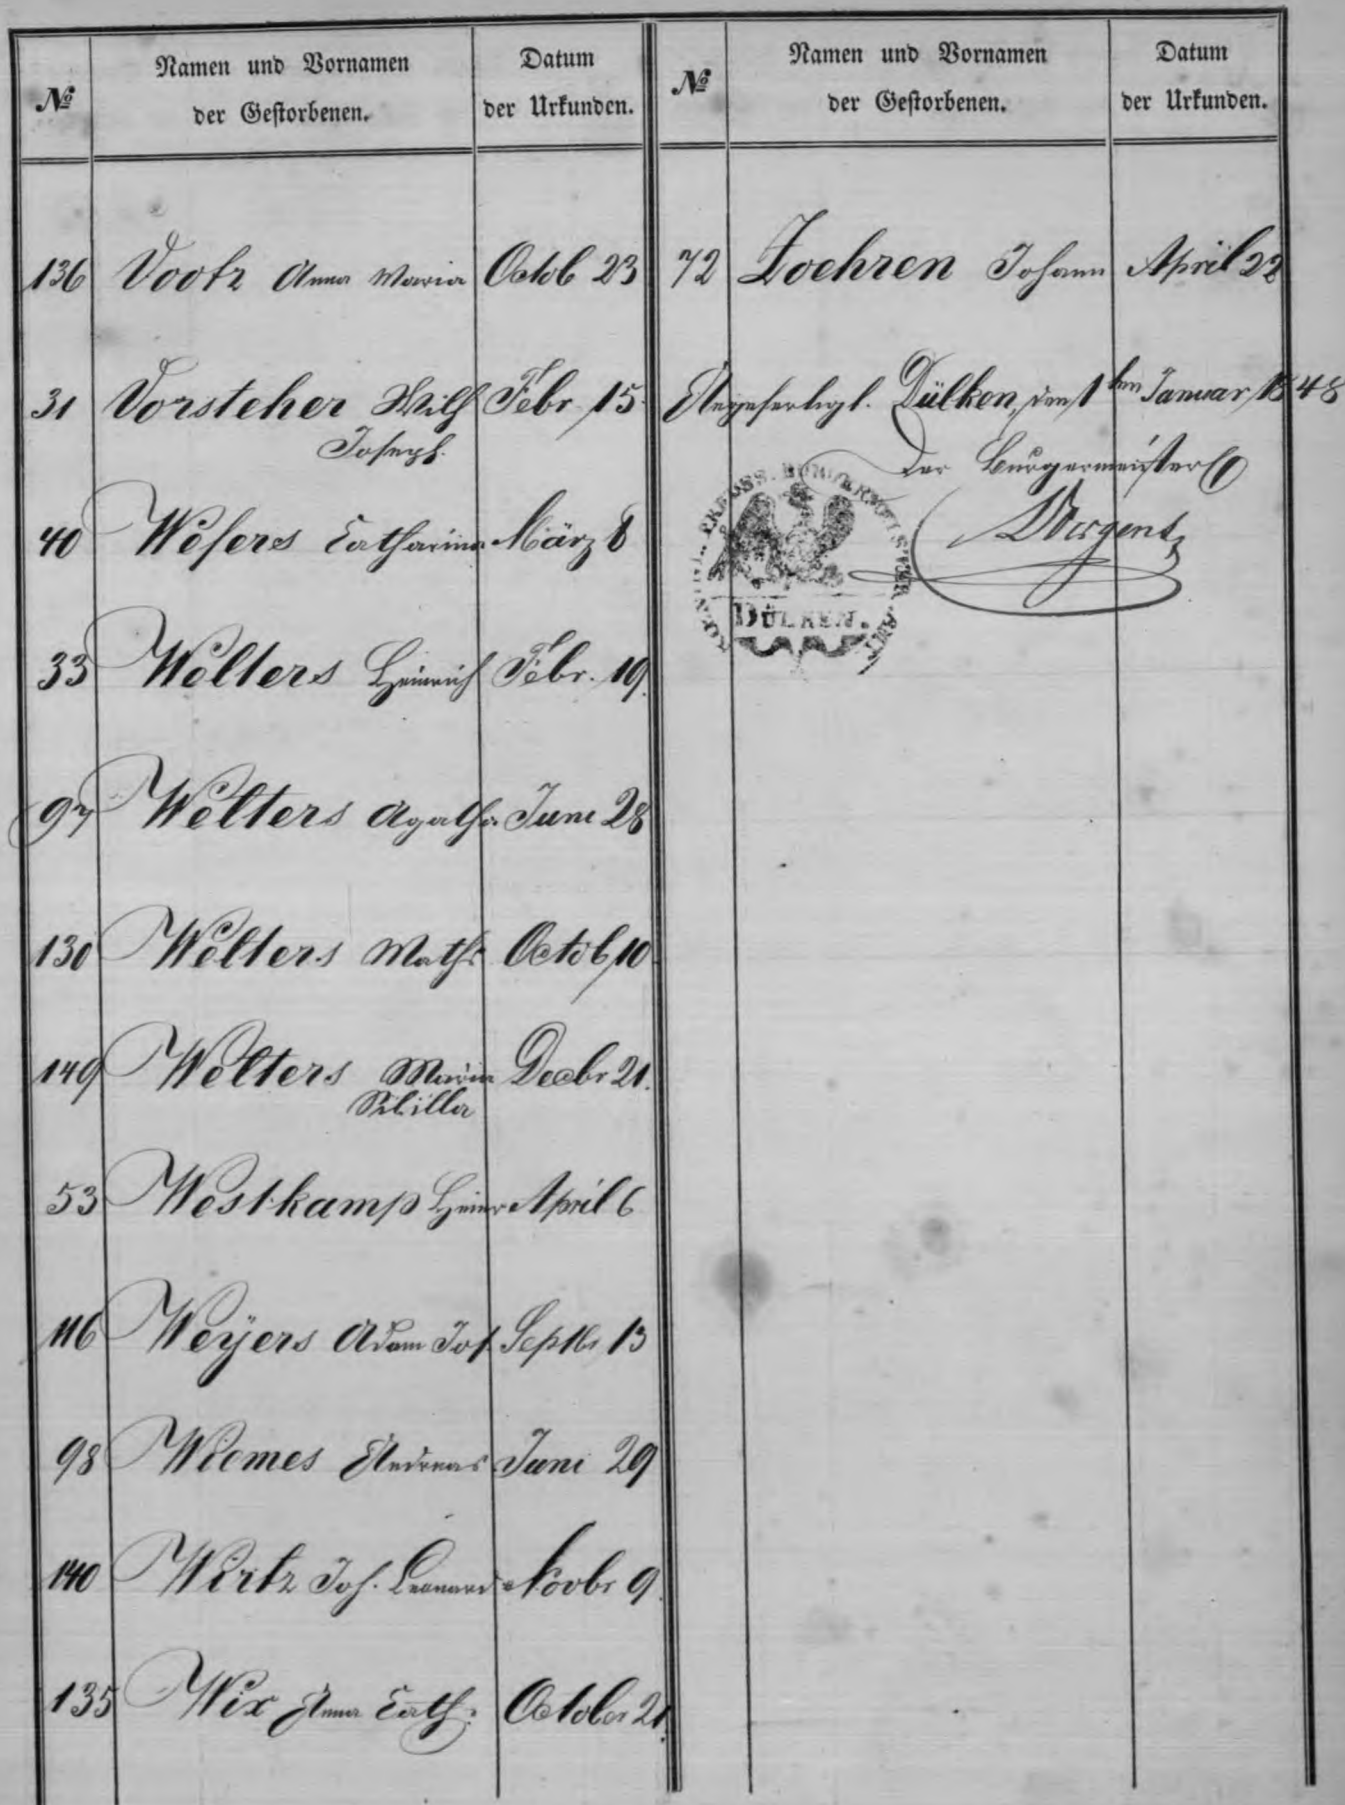 № Namen und Vornamen der Gestorbenen. Datum der Urkunden.
136 Vootz Anna Maria Octob 23
31 Vorsteher Wilh Febr. 15
Joseph
40 Wefers Catharina März 8
33 Wolters Heinrich Febr. 19.
97 Wolters Agatha Juni 28
130 Wolters Maths Octob 10
149 Wolters Maria Decbr 21.
Sibilla
53 Westkamp Heinr April 6
116 Weÿers Adam Jos. Septbr 13
98 Wiemes Andreas Juni 29
140 Wirtz Joh. Leonard Novbr 9.
135 Wix Anna Cath. October 21.
№ Namen und Vornamen der Gestorbenen. Datum der Urkunden.
72 Zoehren Johann April 22
Ausgefertigt. Dülken, den 1ten Januar 1848
Der Bürgermeister
DÜLKEN.